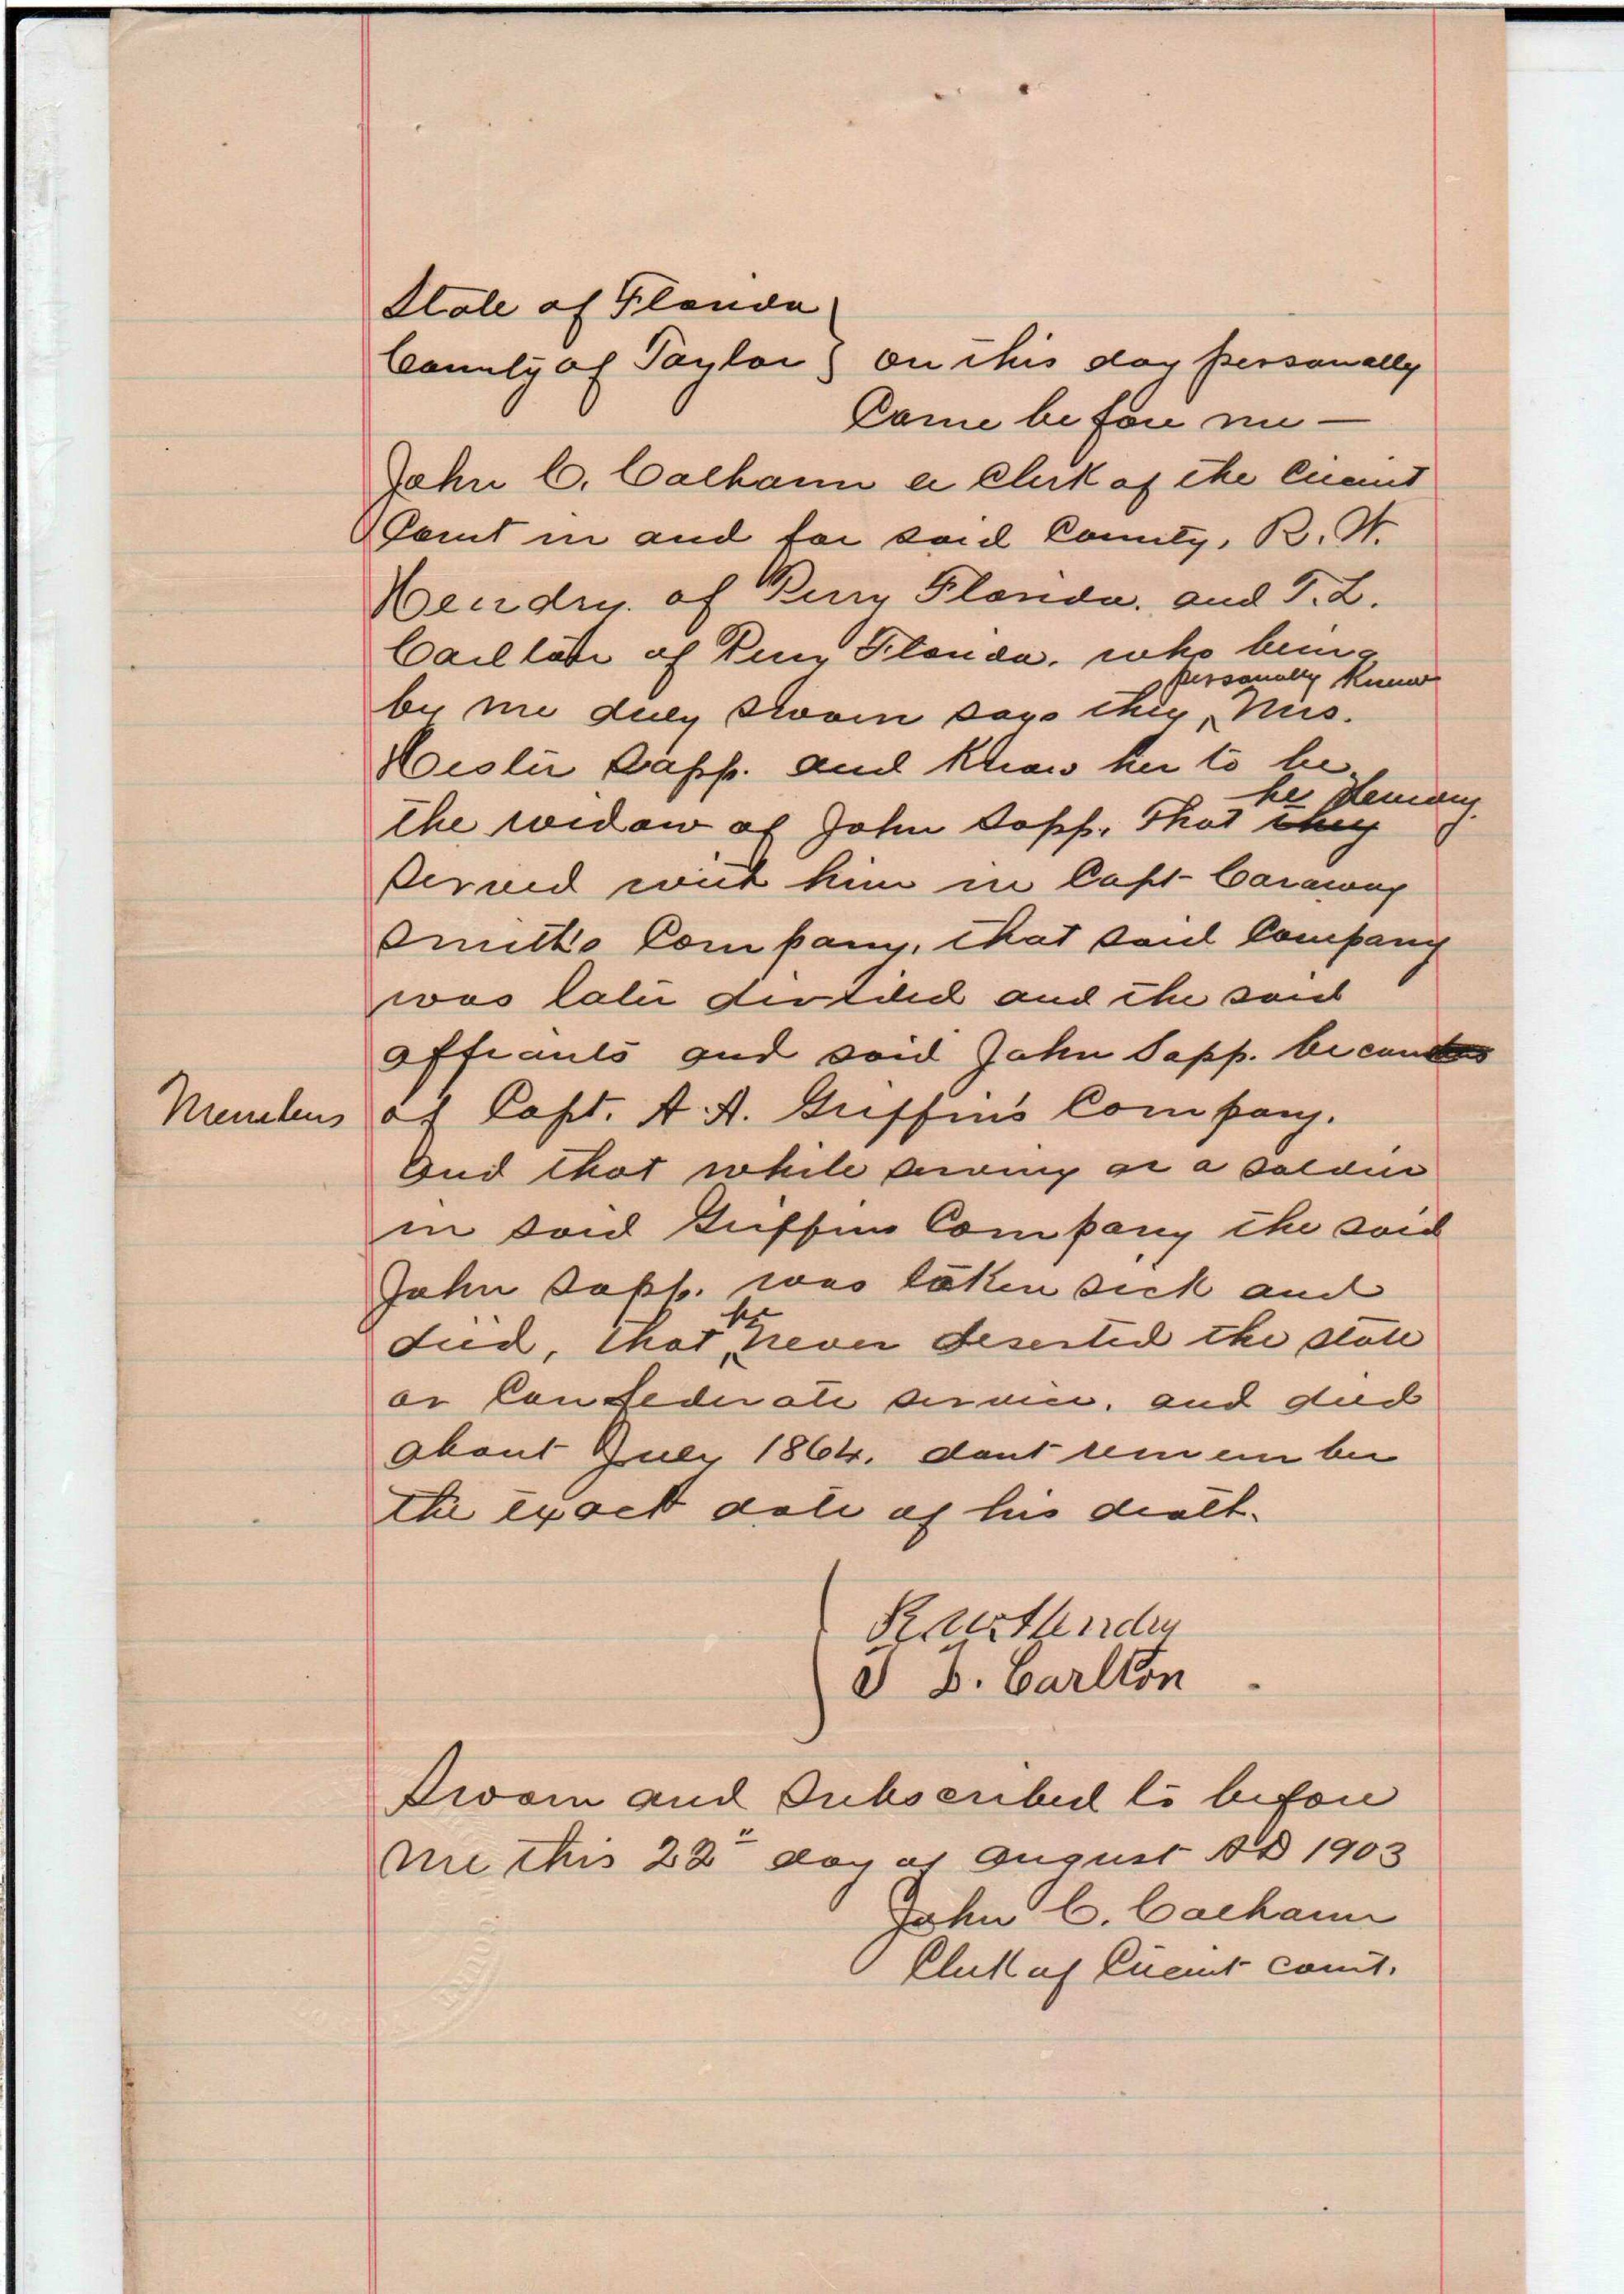 State of Florida
County of Taylor } on this day personally
Came before me —
John C. Calhoun a Clerk of the Circuit
Court in and for said County, R. W.
Hendry of Perry Florida. and T. L.
Carlton of Perry Florida. who being
personally know
by me duly sworn says they Mrs.
Hester Sapp. and Know her to be
he Hendry
the widow of John Sapp. That they
Served with him in Capt Caraway
Smith's Company, that said Company
was later divided and the said
affiants and said John Sapp. became
Members of Capt. A. A. Griffin's Company.
And that while serving as a soldier
in said Griffins Company the said
John Sapp. was taken sick and
he
died, that never deserted the state
or Confederate service. and died
about July 1864. dont remember
the exact date of his death.
R W Hendry
T L. Carlton
Sworn and Subscribed to before
me this 22" day of August AD 1903
John C. Calhoun
Clerk of Circuit Court.